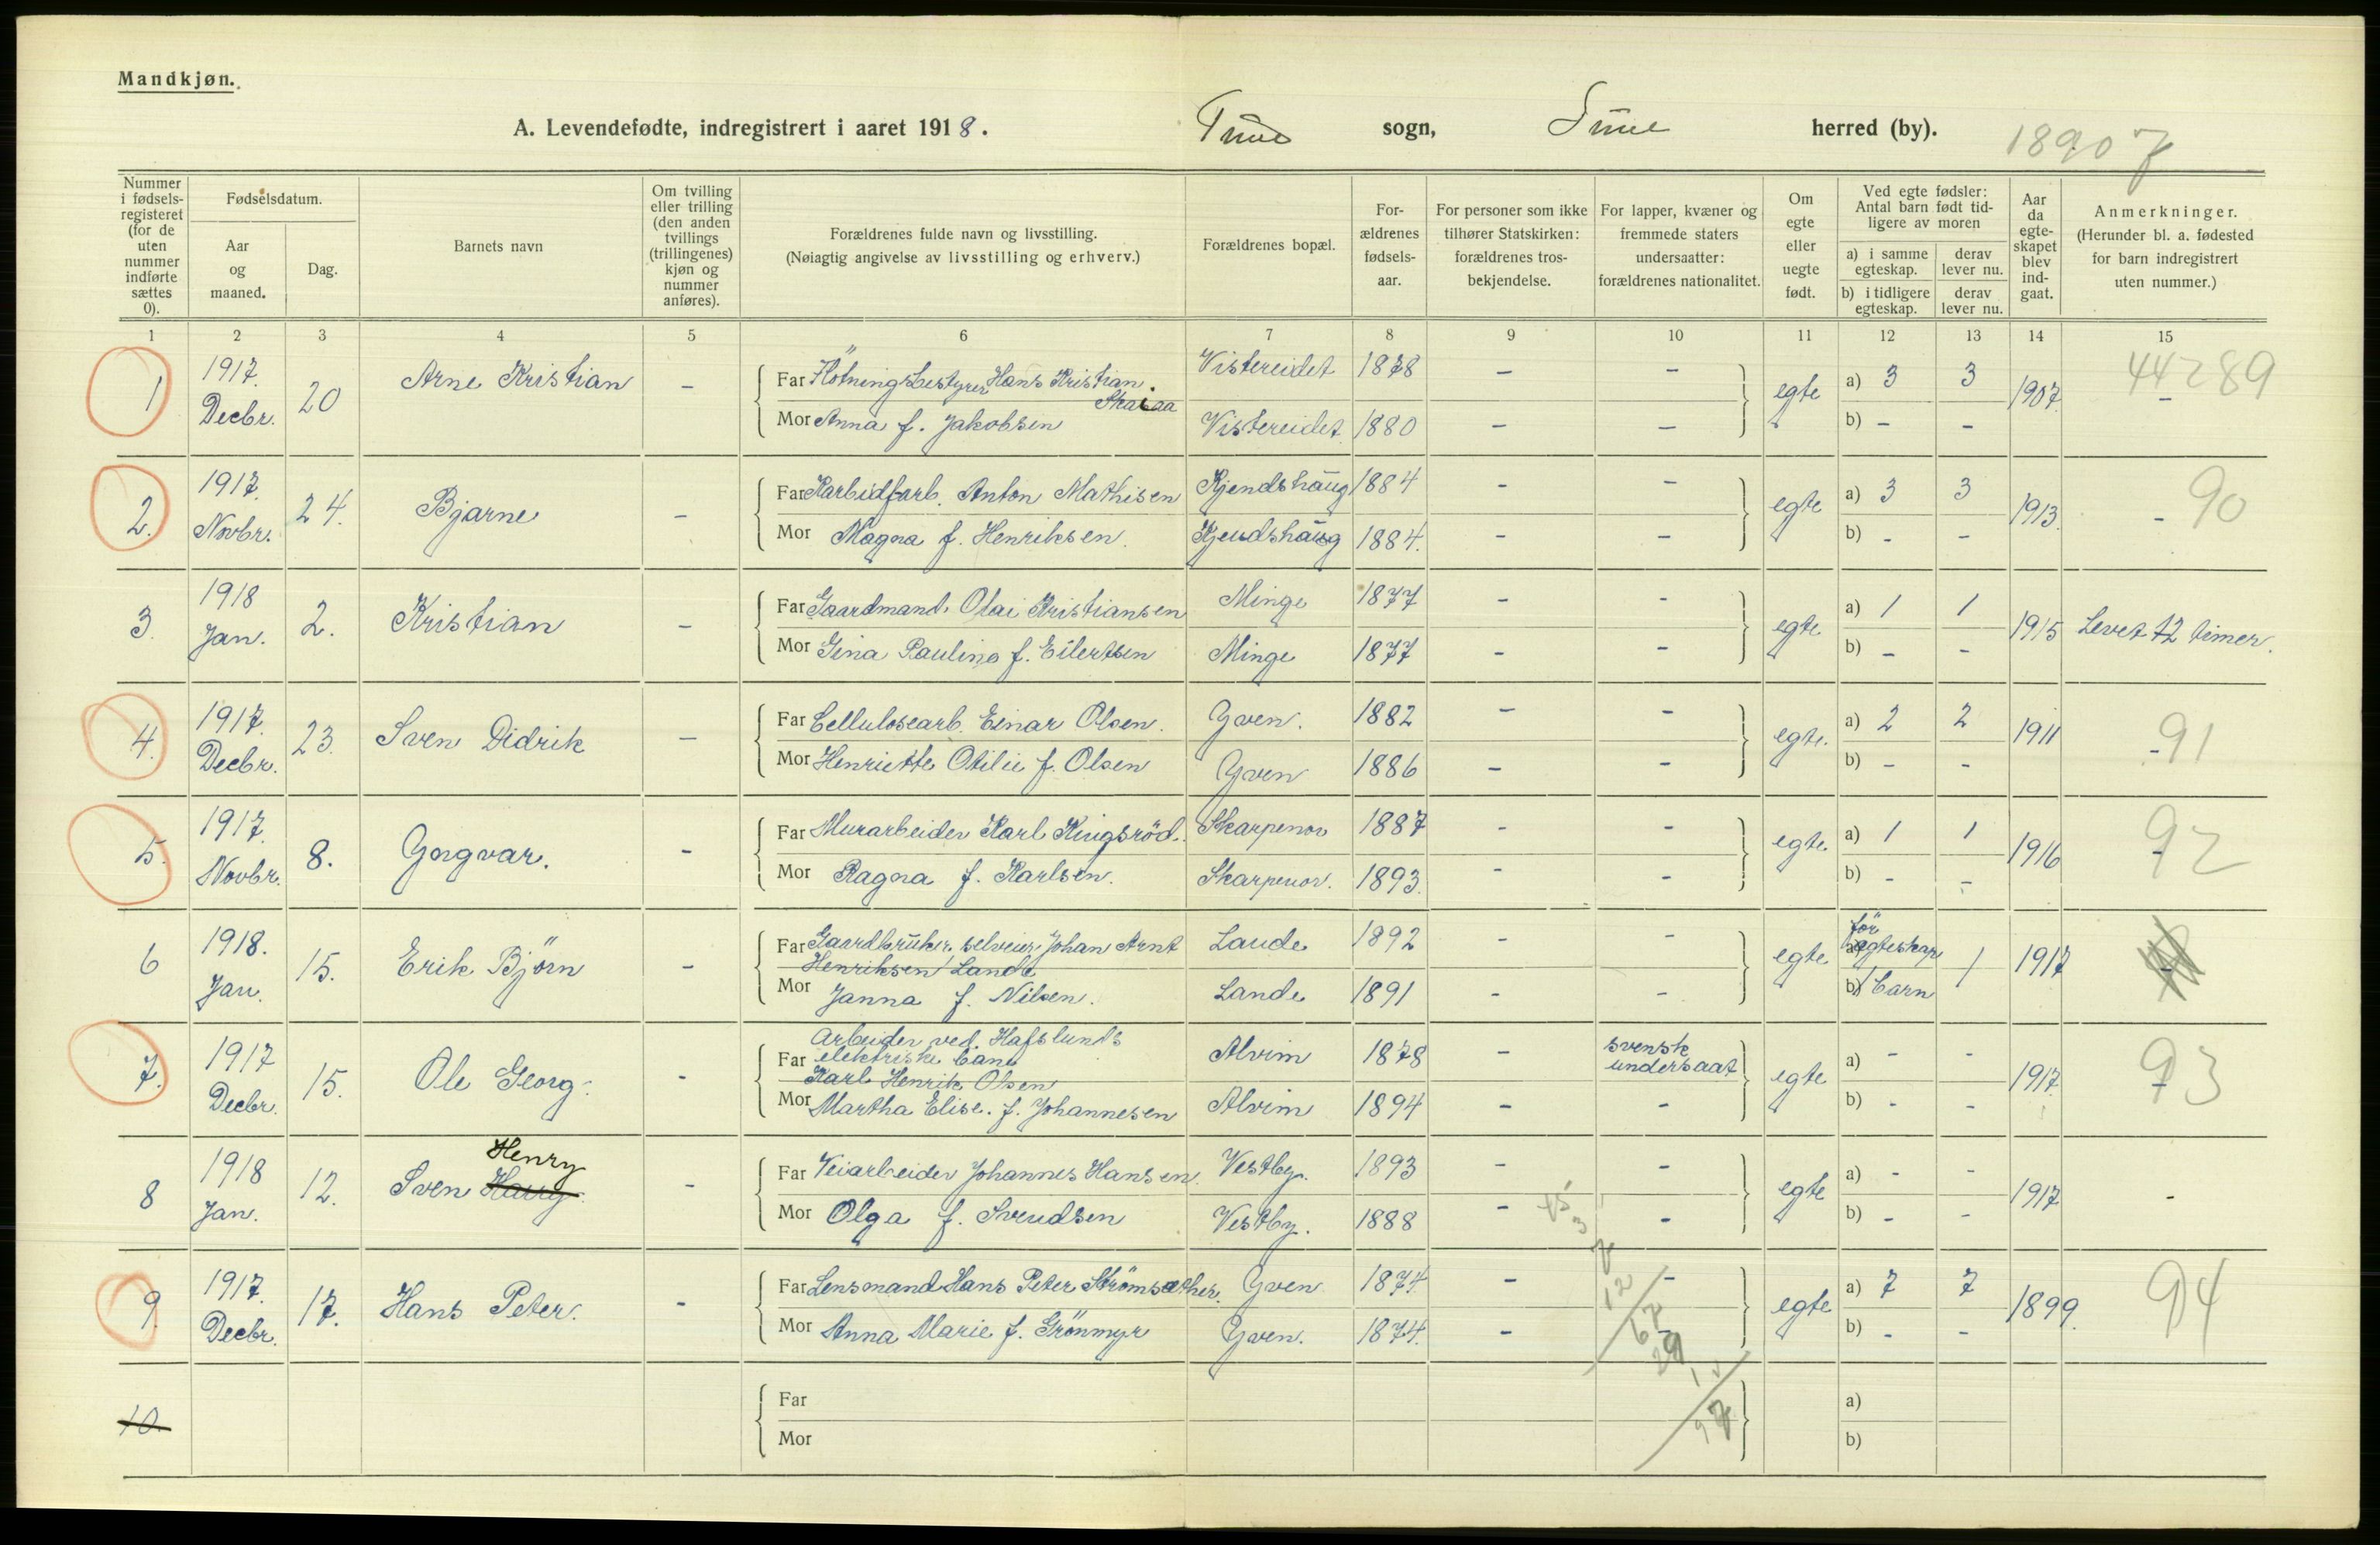 Mandkjøn.
A. Levendefødte, indregistrert i aaret 1918. Tune sogn, Tune herred (by). 18907
Nummer i fødsels-registeret (for de uten nummer indførte sættes 0).
Fødselsdatum.
Aar og maaned.
Dag.
Barnets navn
Om tvilling eller trilling (den anden tvillings (trillingenes) kjøn og nummer anføres).
Forældrenes fulde navn og livsstilling.
(Nøiagtig angivelse av livsstilling og erhverv.)
Forældrenes bopæl.
For-ældrenes fødsels-aar.
For personer som ikke tilhører Statskirken: forældrenes tros-bekjendelse.
For lapper, kvæner og fremmede staters undersaatter: forældrenes nationalitet.
Om egte eller uegte født.
Ved egte fødsler: Antal barn født tid-ligere av moren
a) i samme egteskap. derav lever nu.
b) i tidligere egteskap. derav lever nu.
Aar da egte-skapet blev ind-gaat.
Anmerkninger.
(Herunder bl. a. fødested for barn indregistrert uten nummer.)
1 2 3 4 5 6 7 8 9 10 11 12 13 14 15
1 1917. Decbr. 20 Arne Kristian - Far Flötningsbestyrer Hans Kristian Skaraa Vistereidet 1878 - - egte a) 3 3 1907. 44289 -
Mor Anna f. Jakobsen Vistereidet 1880 - - b) - -
2. 1917. Novbr. 24. Bjarne - Far Karbidfarb. Anton Mathisen Kjendshaug 1884 - - egte a) 3 3 1913. - 90
Mor Magna f. Henriksen. Kjendshaug 1884. - - b) - -
3 1918 Jan. 2. Kristian - Far Gaardmand. Olai Kristiansen Minge 1877 - - egte a) 1 1 1915 Levet 12 timer.
Mor Gina Pauline f. Eilertsen Minge 1877 - - b) - -
4. 1917. Decbr. 23. Sven Didrik - Far Cellulosearb. Einar Olsen. Yven. 1882 - - egte. a) 2 2 1911 - 91
Mor Henriette Otilie f. Olsen Yven 1886 - - b) - -
5. 1917. Novbr. 8. Yngvar. - Far Murarbeider Karl Kingsröd. Skarpenor 1887 - - egte. a) 1 1 1916 - 92
Mor Ragna f. Karlsen. Skarpenor. 1893. - - b) - -
6 1918. Jan. 15. Erik Björn - Far Gaardbruker, selveier, Johan Arnt Henriksen Lande Lande 1892 - - egte a) för egteskap 1 1917
Mor Janna f. Nilsen. Lande 1891 - - b) 1 barn
7. 1917 Decbr. 15. Ole Georg. - Far Arbeider ved Hafslunds elektriske bane Karl Henrik Olsen Alvim 1878 - svensk undersaat egte a) - - 1917. - 93
Mor Martha Elise. f. Johannesen Alvim 1894 - - b) - -
8 1918 Jan. 12. Sven Harry Henry - Far Veiarbeider Johannes Hansen. Vestby. 1893 - - egte a) - - 1917. -
Mor Olga f. Svendsen Vestby. 1888 - - b) - -
9. 1917. Decbr. 17. Hans Peter. - Far Lensmand Hans Peter Strömsæther. Yven 1874. - - egte a) 7 7 1899. 94
Mor Anna Marie f. Grönmyr Yven. 1874. - - b) - -
10. Far a)
Mor b)